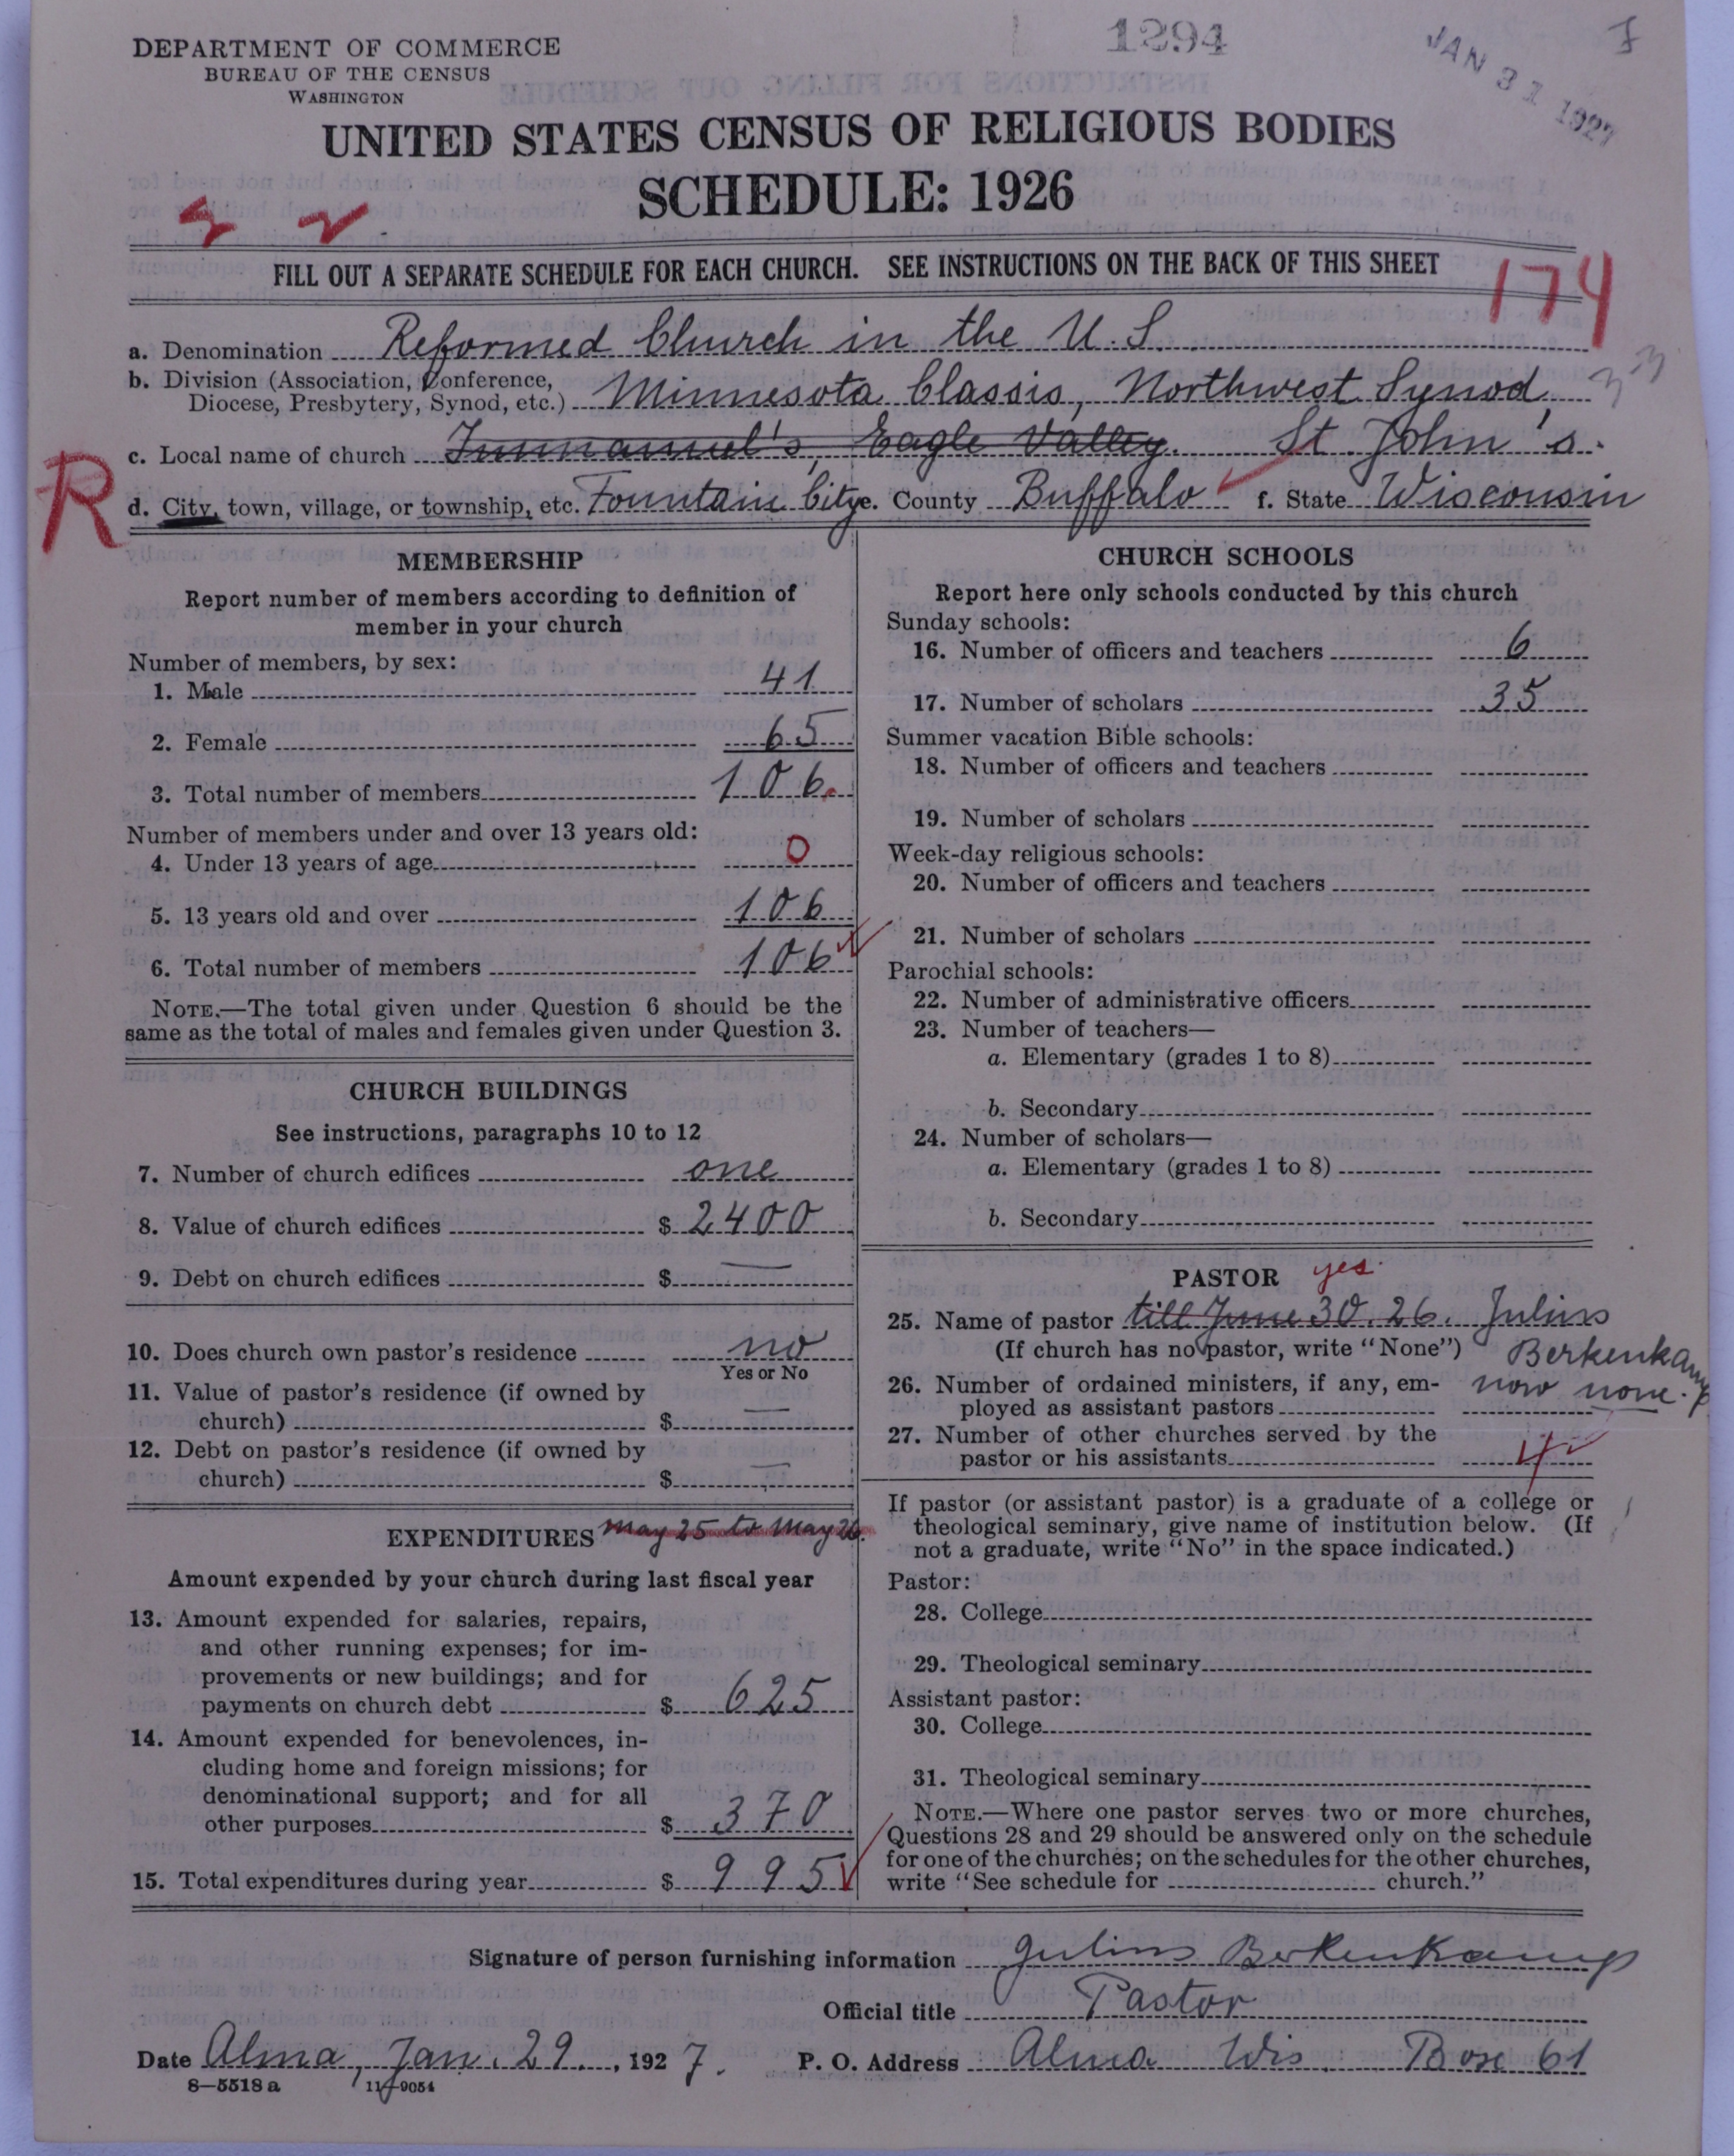 1294
JAN 31 1927
DEPARTMENT OF COMMERCE
BUREAU OF THE CENSUS
WASHINGTON
UNITED STATES CENSUS OF RELIGIOUS BODIES
SCHEDULE: 1926
FILL OUT A SEPARATE SCHEDULE FOR EACH CHURCH. SEE INSTRUCTIONS ON THE BACK OF THIS SHEET
174
a. Denomination Reformed Church in the U.S.
b. Division (Association, Conference,
Diocese, Presbytery, Synod, etc.) Minnesota Classis, Northwest Synod,
c. Local name of church Immanuel's, Eagle Valley St. John's.
R
d. City, town, village, or township, etc. Fountain City e. County Buffalo f. State Wisconsin
MEMBERSHIP
Report number of members according to definition of
member in your church
Number of members, by sex:
1. Male 41
2. Female 65
3. Total number of members 106.
Number of members under and over 13 years old:
4. Under 13 years of age 0
5. 13 years old and over 106
6. Total number of members 106
NOTE.—The total given under Question 6 should be the
same as the total of males and females given under Question 3.
CHURCH BUILDINGS
See instructions, paragraphs 10 to 12
7. Number of church edifices one
8. Value of church edifices $ 2400
9. Debt on church edifices $ —
10. Does church own pastor's residence no
Yes or No
11. Value of pastor's residence (if owned by
church) $ —
12. Debt on pastor's residence (if owned by
church) $ —
EXPENDITURES May 25 to May 26.
Amount expended by your church during last fiscal year
13. Amount expended for salaries, repairs,
and other running expenses; for im-
provements or new buildings; and for
payments on church debt $ 625
14. Amount expended for benevolences, in-
cluding home and foreign missions; for
denominational support; and for all
other purposes $ 370
15. Total expenditures during year $ 995
CHURCH SCHOOLS
Report here only schools conducted by this church
Sunday schools:
16. Number of officers and teachers 6
17. Number of scholars 35
Summer vacation Bible schools:
18. Number of officers and teachers
19. Number of scholars
Week-day religious schools:
20. Number of officers and teachers
21. Number of scholars
Parochial schools:
22. Number of administrative officers
23. Number of teachers—
a. Elementary (grades 1 to 8)
b. Secondary
24. Number of scholars—
a. Elementary (grades 1 to 8)
b. Secondary
PASTOR yes.
25. Name of pastor till June 30. 26. Julius
(If church has no pastor, write "None") Berkenkamp
26. Number of ordained ministers, if any, em- now none.
ployed as assistant pastors
27. Number of other churches served by the
pastor or his assistants 4
If pastor (or assistant pastor) is a graduate of a college or
theological seminary, give name of institution below. (If
not a graduate, write "No" in the space indicated.)
Pastor:
28. College
29. Theological seminary
Assistant pastor:
30. College
31. Theological seminary
NOTE.—Where one pastor serves two or more churches,
Questions 28 and 29 should be answered only on the schedule
for one of the churches; on the schedules for the other churches,
write "See schedule for church."
Signature of person furnishing information Julius Berkenkamp
Official title Pastor
Date Alma, Jan. 29, 1927. P. O. Address Alma Wis. Box 61
8—5518 a 11—9054